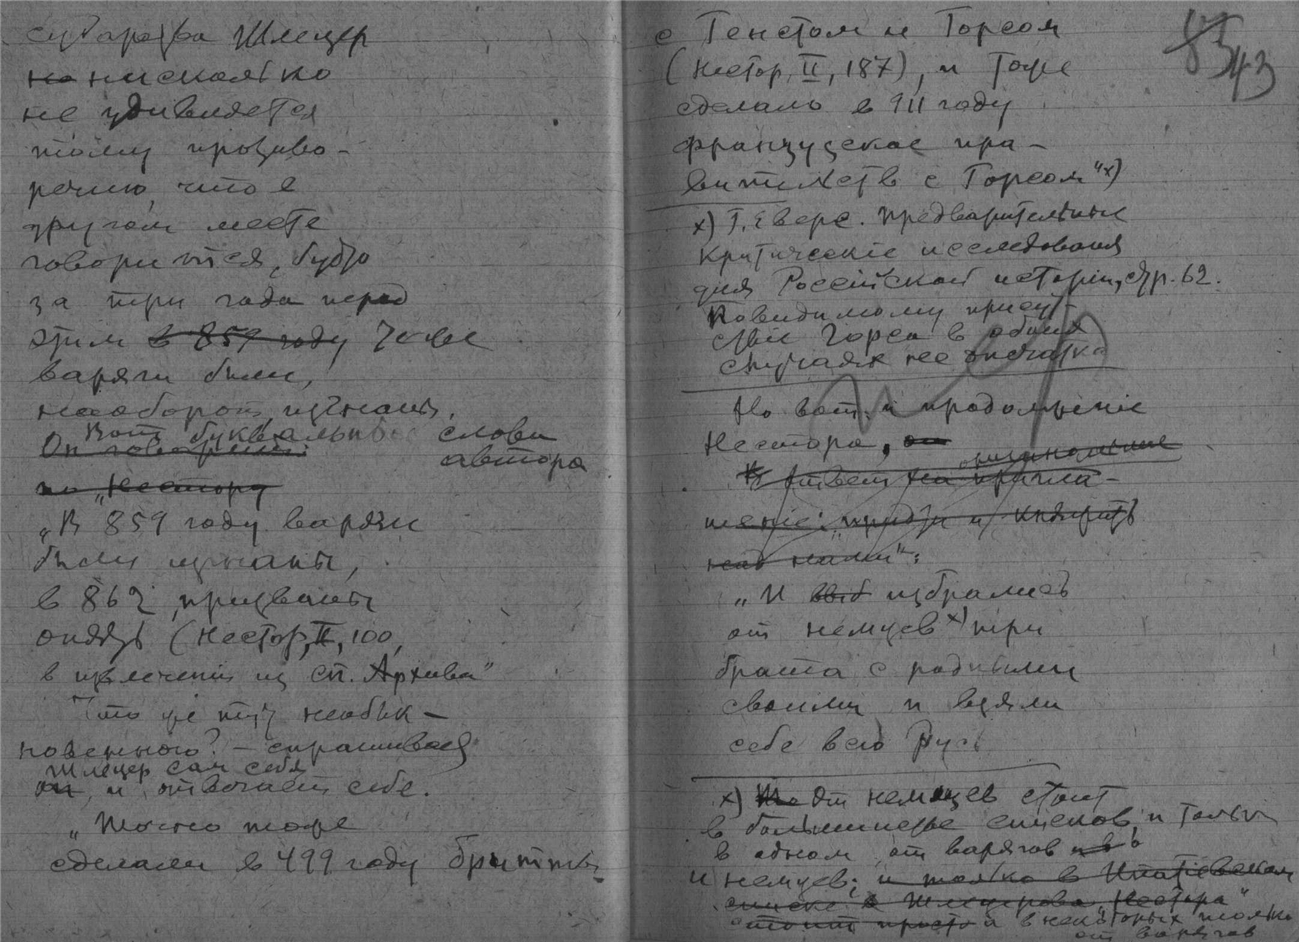 сударства Шлецер
но нисколько
не удивляется
тому противо-
речию, что в
другом месте
говорится, будто
за три года перед
этим в 859 году те же
варяги были,
наоборот, изгнаны.
Вот буквальные слова
Он говорит: автора
по „Нестору
„В 859 году варяги
были изгнаны,
в 862 призваны
опять (Нестор, II, 100,
в извлечении из сп. Архива"
Что же тут необык-
новенного? — спрашивает
Шлецер сам себя
он, и отвечает себе.
„Точно тоже
сделали в 499 году бритты
с Генстом и Горсом
(Нестор, II, 187), и тоже
сделало в 911 году
французское пра-
вительств с Горсом" х)
х) Г. Эверс. Предварительные
критические исследования
для Российской истории, стр. 62.
Повидимому присут-
ствие Горса в обоих
случаях не опечатка
83 43
Но вот и продолжение
Нестора, он
В ответ на пригла-
шение: "придти и княжить
над нами":
„И выб избрались
от немцев х) три
брата с родными
своими и взяли
себе всю Русь
х) От немцев стоит
в большинстве списков, и только
в одном от варягов
и немцев; и только в Ипатьевском
списке Шлецерова Нестора"
стоит просто и в некоторых только
от варягов